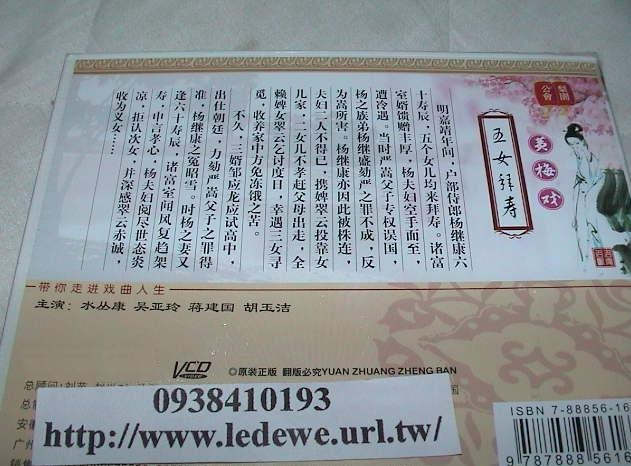 梨園
公會
黄梅戏
五女拜寿
明嘉靖年间，户部侍郎杨继康六
十寿辰，五个女儿均来拜寿。诸富
室婿馈赠丰厚，杨夫妇空手而至，
遭冷遇。当时严嵩父子专权吴国，
杨之族弟杨继盛劾严之罪不成，反
为嵩所害。杨继康亦因此被株连，
夫妇二人不得已，携婢翠云投靠女
儿家，二女儿不孝赶父母出走，全
赖婢女翠云乞讨度日，幸遇三女寻
觅，收养家中方免冻饿之苦。
不久，三婿邹应龙应试高中，
出仕朝廷，力劾严嵩父子之罪得
准，杨继康之冤昭雪。时杨之妻又
逢六十寿辰，诸富室闻风复趋驾
寿，申言孝心，杨夫妇阅尽世态炎
凉，拒认次女，并深感翠云赤诚，
收为义女……
带你走进戏曲人生
主演：水丛康 吴亚玲 蒋建国 胡玉洁
VCD VIDEO
◎原装正版 翻版必究YUAN ZHUANG ZHENG BAN
总顾问：刘
国
总
安徽
广州
销售
0938410193
http://www.ledewe.url.tw/
ISBN 7-88856-16
9 787888 5616